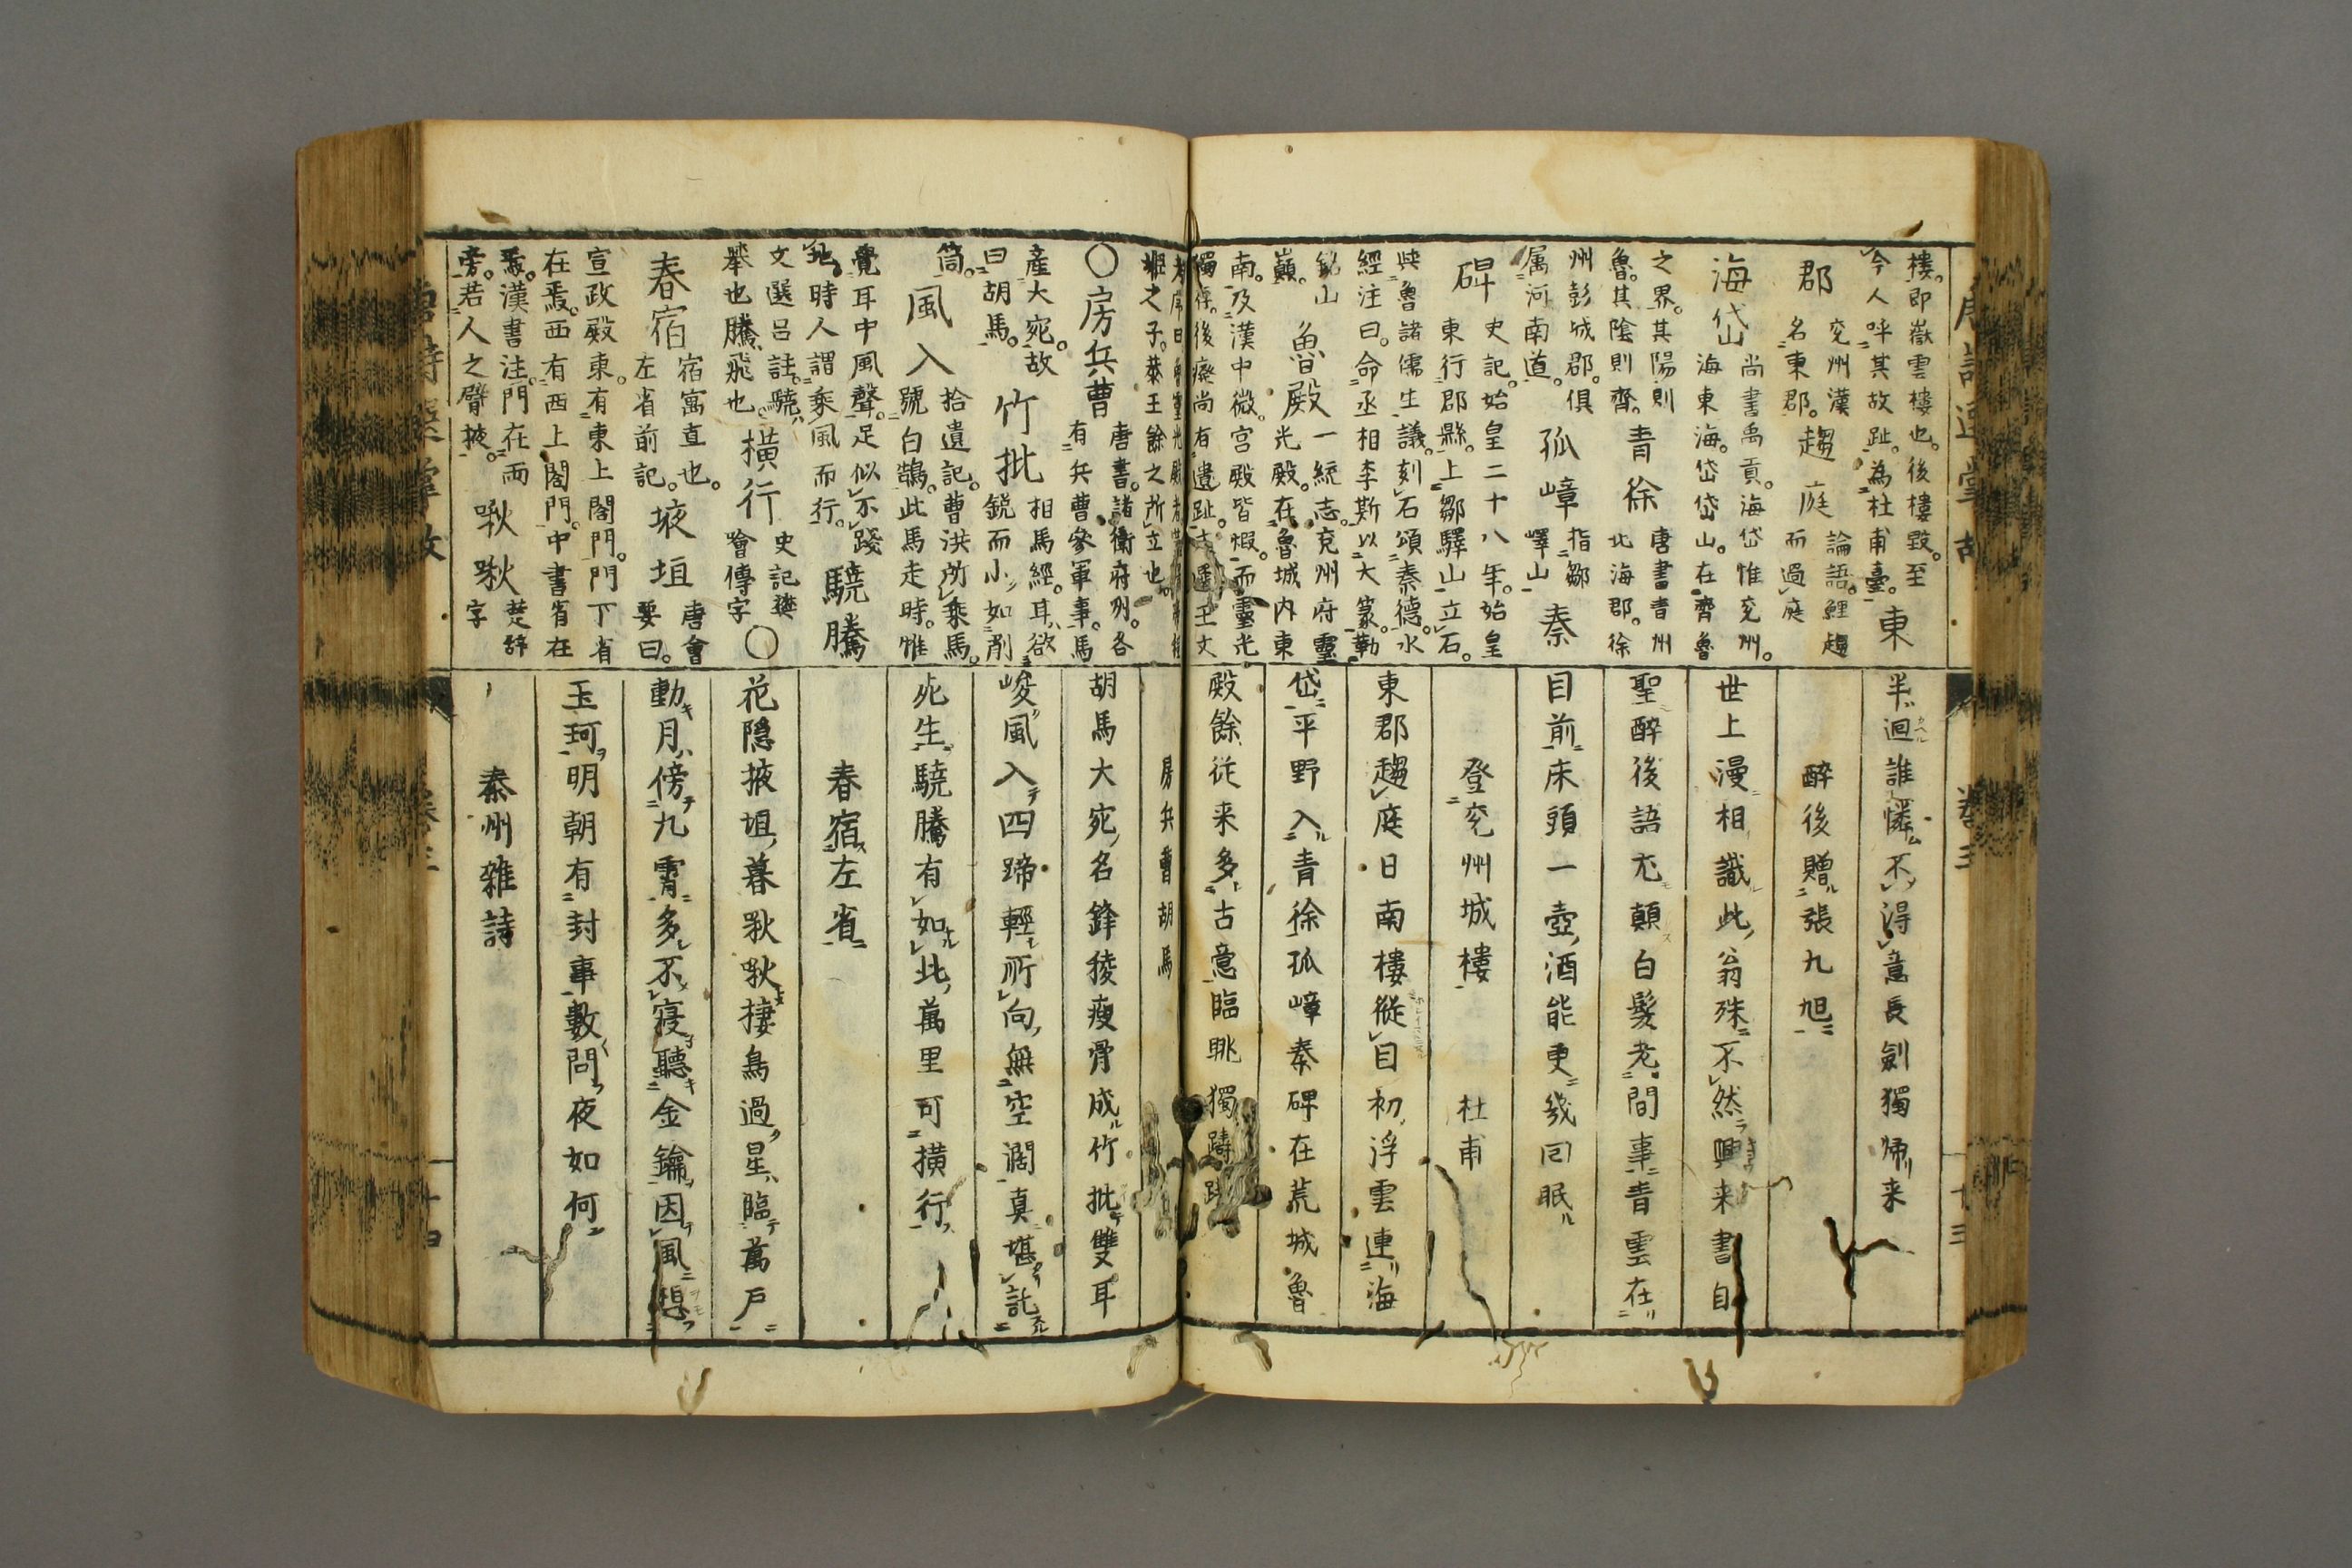 樓。即嶽雲樓也。後樓毀。至
今人呼其故趾。為杜甫臺。東
郡 兗州漢名東郡。趨庭 論語。鯉趨而過庭
海岱 尚書禹貢。海岱惟兗州。海東海。岱岱山。在齊魯
之界。其陽則魯。其陰則齊。青徐 唐書青州北海郡。徐
州彭城郡。俱属河南道。孤嶂 指鄒嶧山 秦
碑 史記。始皇二十八年。始皇東行郡縣。上鄒驛山立石。
與魯諸儒生議。刻石頌秦德。水經注曰。命丞相李斯以大篆。勒
銘山巔。魯殿 一統志。兗州府靈光殿。在魯城内東
南。及漢中微。宮殿皆燬。而靈光獨存。後癈尚有遺趾。
半迴誰憐不得意長劍獨帰来
醉後贈張九旭
世上漫相識此翁殊不然興来書自
聖醉後語尤顛白髮老間事青雲在
目前床頭一壺酒能更幾回眠
登兗州城樓 杜甫
東郡趨庭日南樓縱目初浮雲連海
岱平野入青徐孤嶂秦碑在荒城魯
殿餘從来多古意臨眺獨躊躇
恭王餘之所立也
○房兵曹 唐書。諸衛府州。各有兵曹參軍事。馬
産大宛。故曰胡馬。竹批 相馬經。耳欲銳而小。如削
筒。風入 拾遺記。曹洪所乘馬。號白鵠。此馬走時。惟
覺耳中風聲。足似不踐地。時人謂乘風而行。驍騰
文選呂註。驍舉也騰飛也。橫行 史記樊噲傳字 ○
春宿 宿寓直也。左省前記。掖垣 唐會要曰。
宣政殿東。有東上閤門。門下省在焉。西有西上閤門。中書省在
焉。漢書注。門在両旁。若人之臂掖。啾啾 楚辞字
房兵曹胡馬
胡馬大宛名鋒稜瘦骨成竹批雙耳
峻風入四蹄輕所向無空濶真堪託
死生驍騰有如此萬里可橫行
春宿左省
花隠掖垣暮啾啾棲鳥過星臨萬戸
動月傍九霄多不寢聽金鑰因風想
玉珂明朝有封事數問夜如何
秦州雜詩